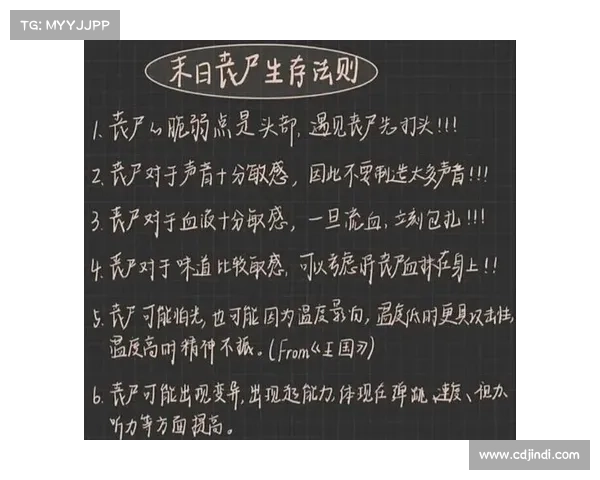 TG: MYYJJPP
末日丧尸生存法则
1. 丧尸的脆弱点是头部，遇见丧尸先打头!!!
2. 丧尸对于声音十分敏感，因此不要制造太多声音!!!
3. 丧尸对于血液十分敏感，一旦流血，立刻包扎!!!
4. 丧尸对于味道比较敏感，可以考虑将丧尸血抹在身上!!
5. 丧尸可能怕光，也可能因为温度影响，温度低时更具攻击性，
温度高时精神不振。(From《王国》)
6. 丧尸可能出现变异，出现超能力，体现在弹跳、速度、视力、
听力等方面提高。
www.cdjindi.com